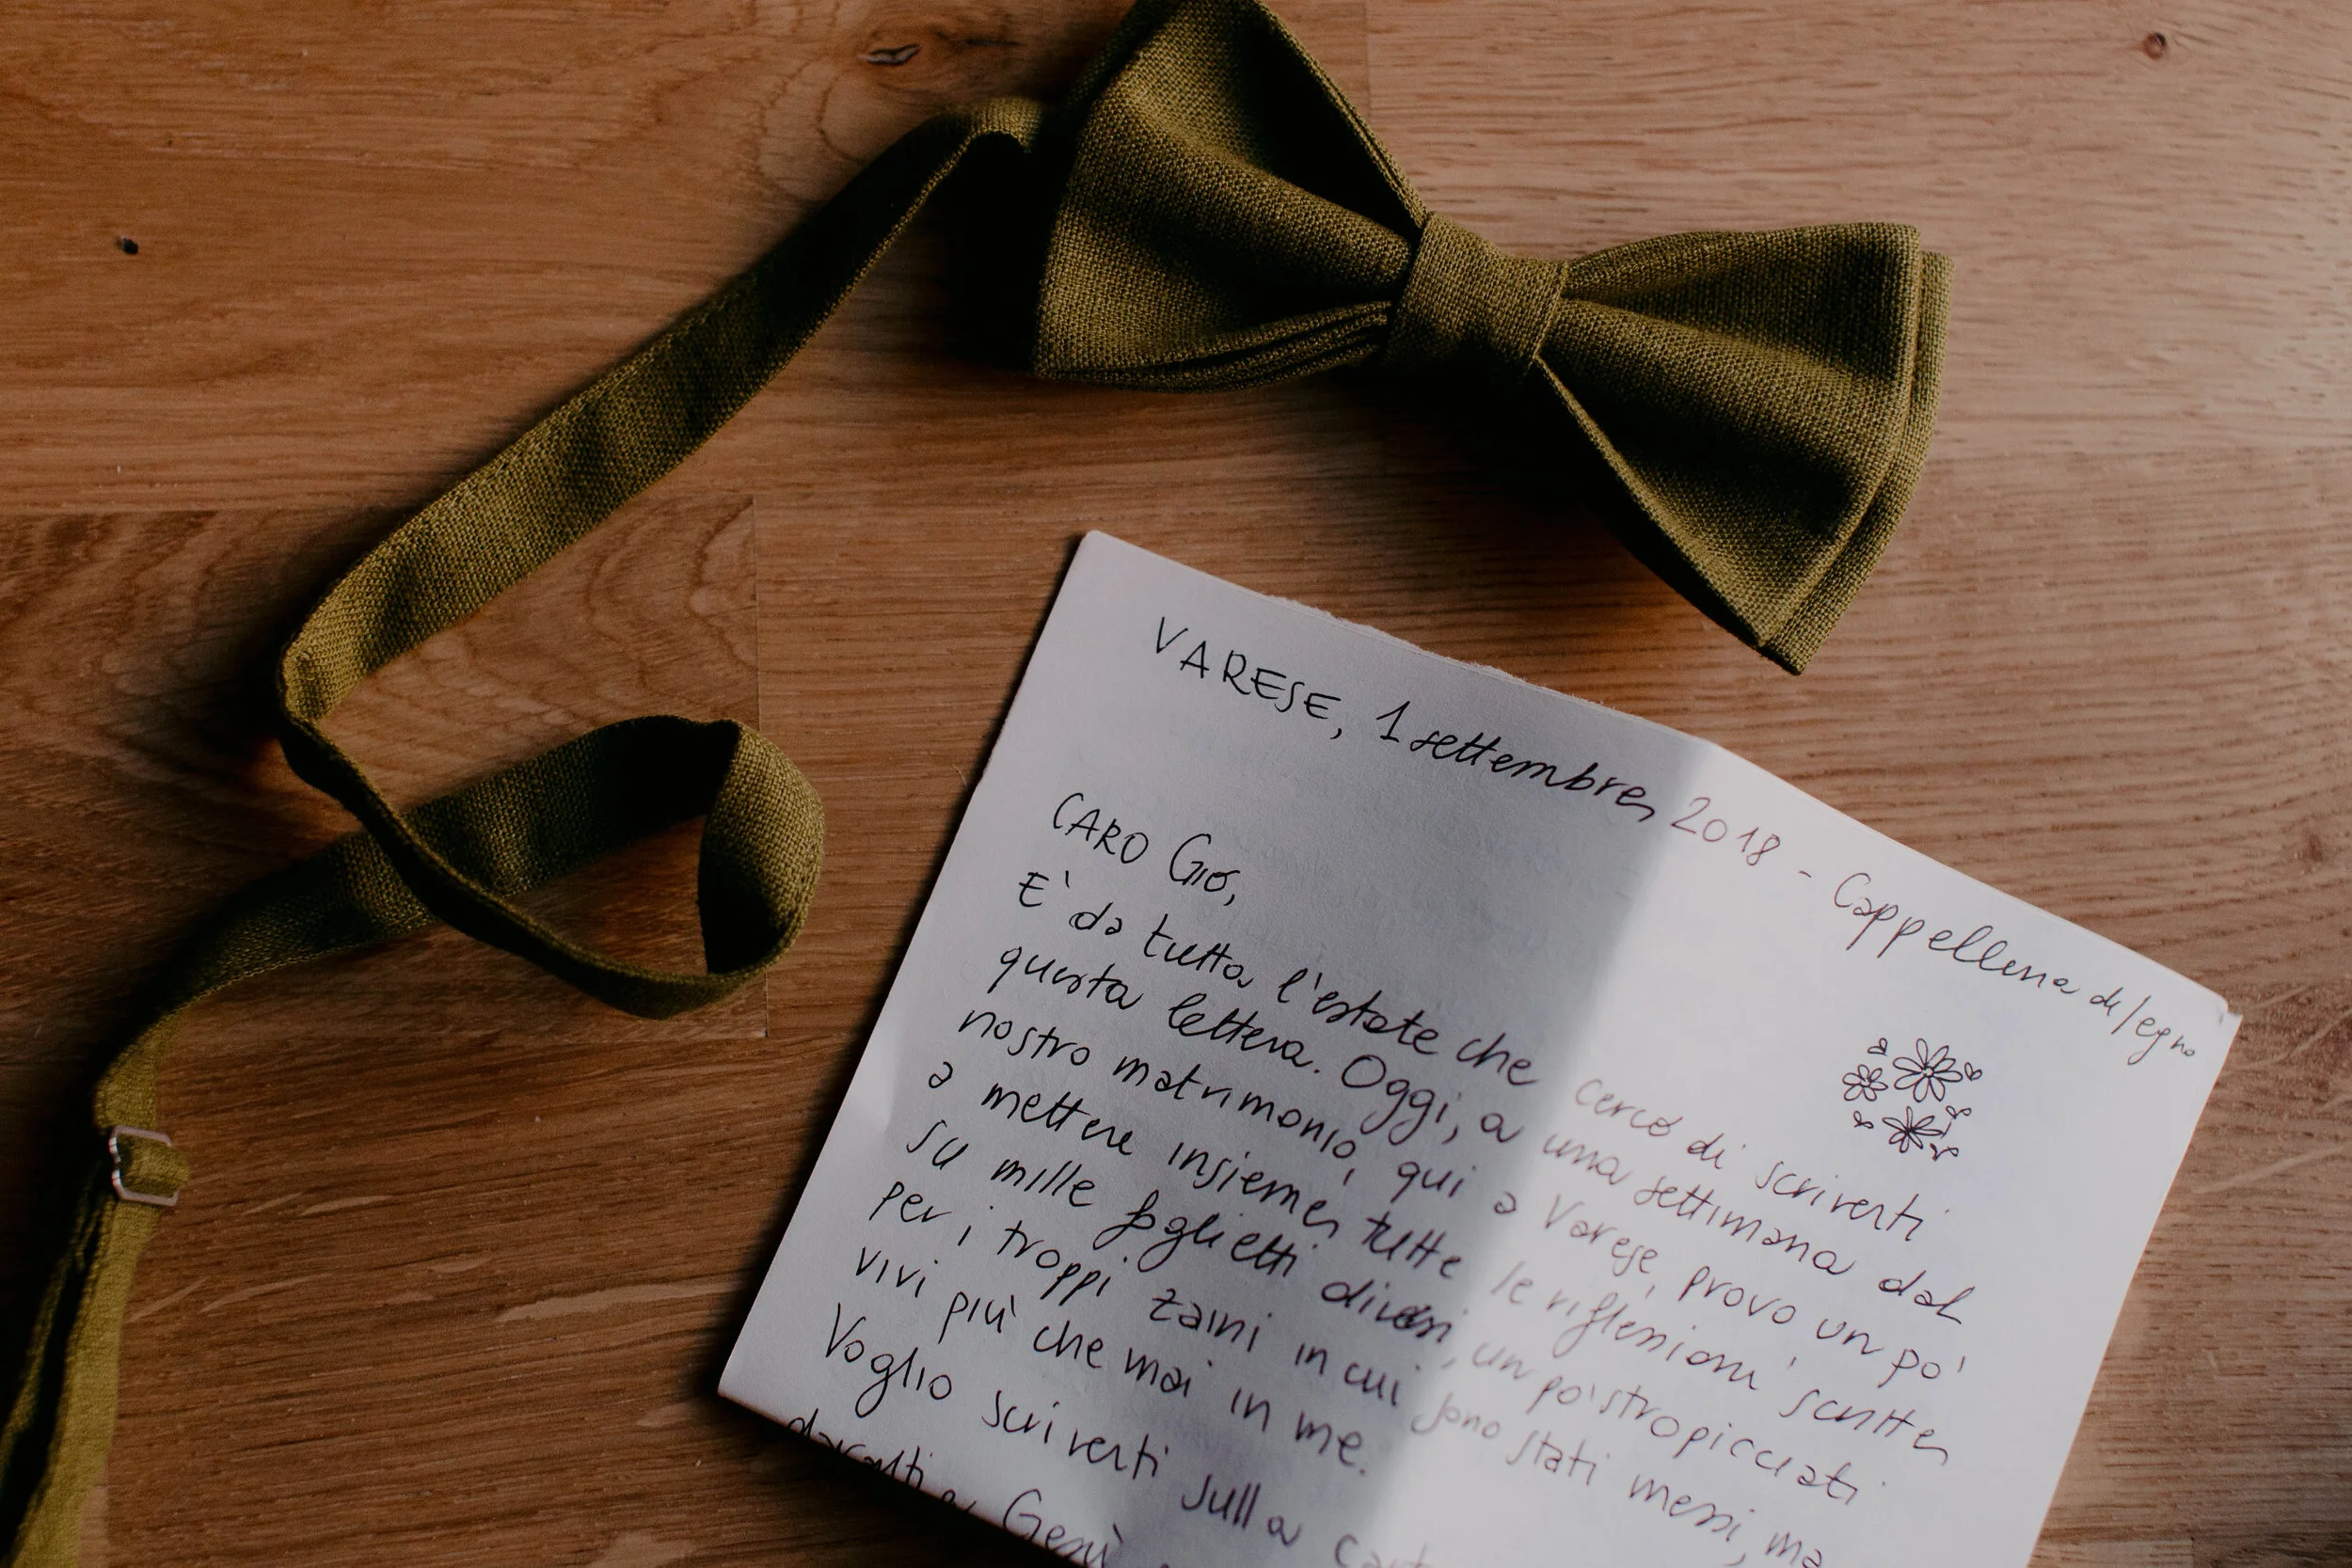 VARESE, 1 settembre 2018 - Cappellina di legno
CARO Giò,
E' da tutta l'estate che cerco di scriverti
questa lettera. Oggi, a una settimana dal
nostro matrimonio, qui a Varese, provo un po'
a mettere insieme tutte le riflessioni scritte
su mille foglietti diversi, un po' stropicciati
per i troppi zaini in cui sono stati messi, ma
vivi più che mai in me.
Voglio scriverti sulla
davanti a Gesù